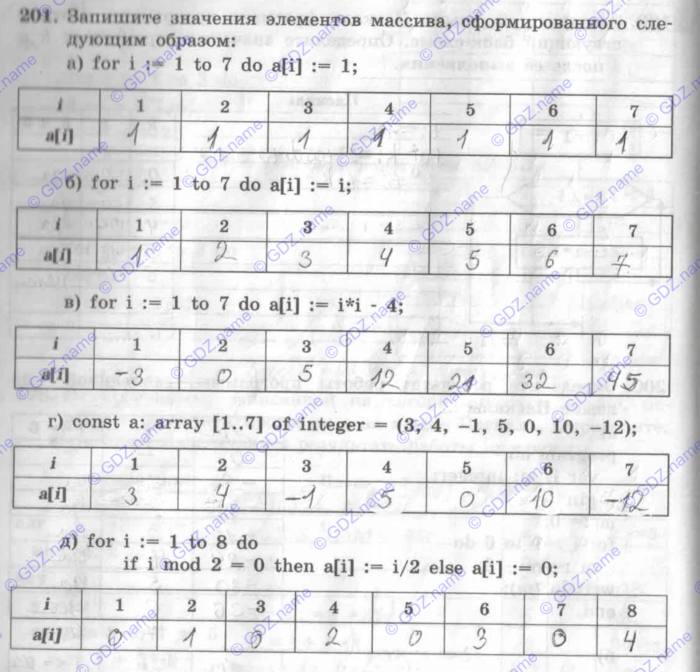 201. Запишите значения элементов массива, сформированного сле-
дующим образом:
а) for i := 1 to 7 do a[i] := 1;
i 1 2 3 4 5 6 7
a[i] 1 1 1 1 1 1 1
б) for i := 1 to 7 do a[i] := i;
i 1 2 3 4 5 6 7
a[i] 1 2 3 4 5 6 7
в) for i := 1 to 7 do a[i] := i*i - 4;
i 1 2 3 4 5 6 7
a[i] -3 0 5 12 21 32 45
г) const a: array [1..7] of integer = (3, 4, -1, 5, 0, 10, -12);
i 1 2 3 4 5 6 7
a[i] 3 4 -1 5 0 10 -12
д) for i := 1 to 8 do
if i mod 2 = 0 then a[i] := i/2 else a[i] := 0;
i 1 2 3 4 5 6 7 8
a[i] 0 1 0 2 0 3 0 4
© GDZ.name